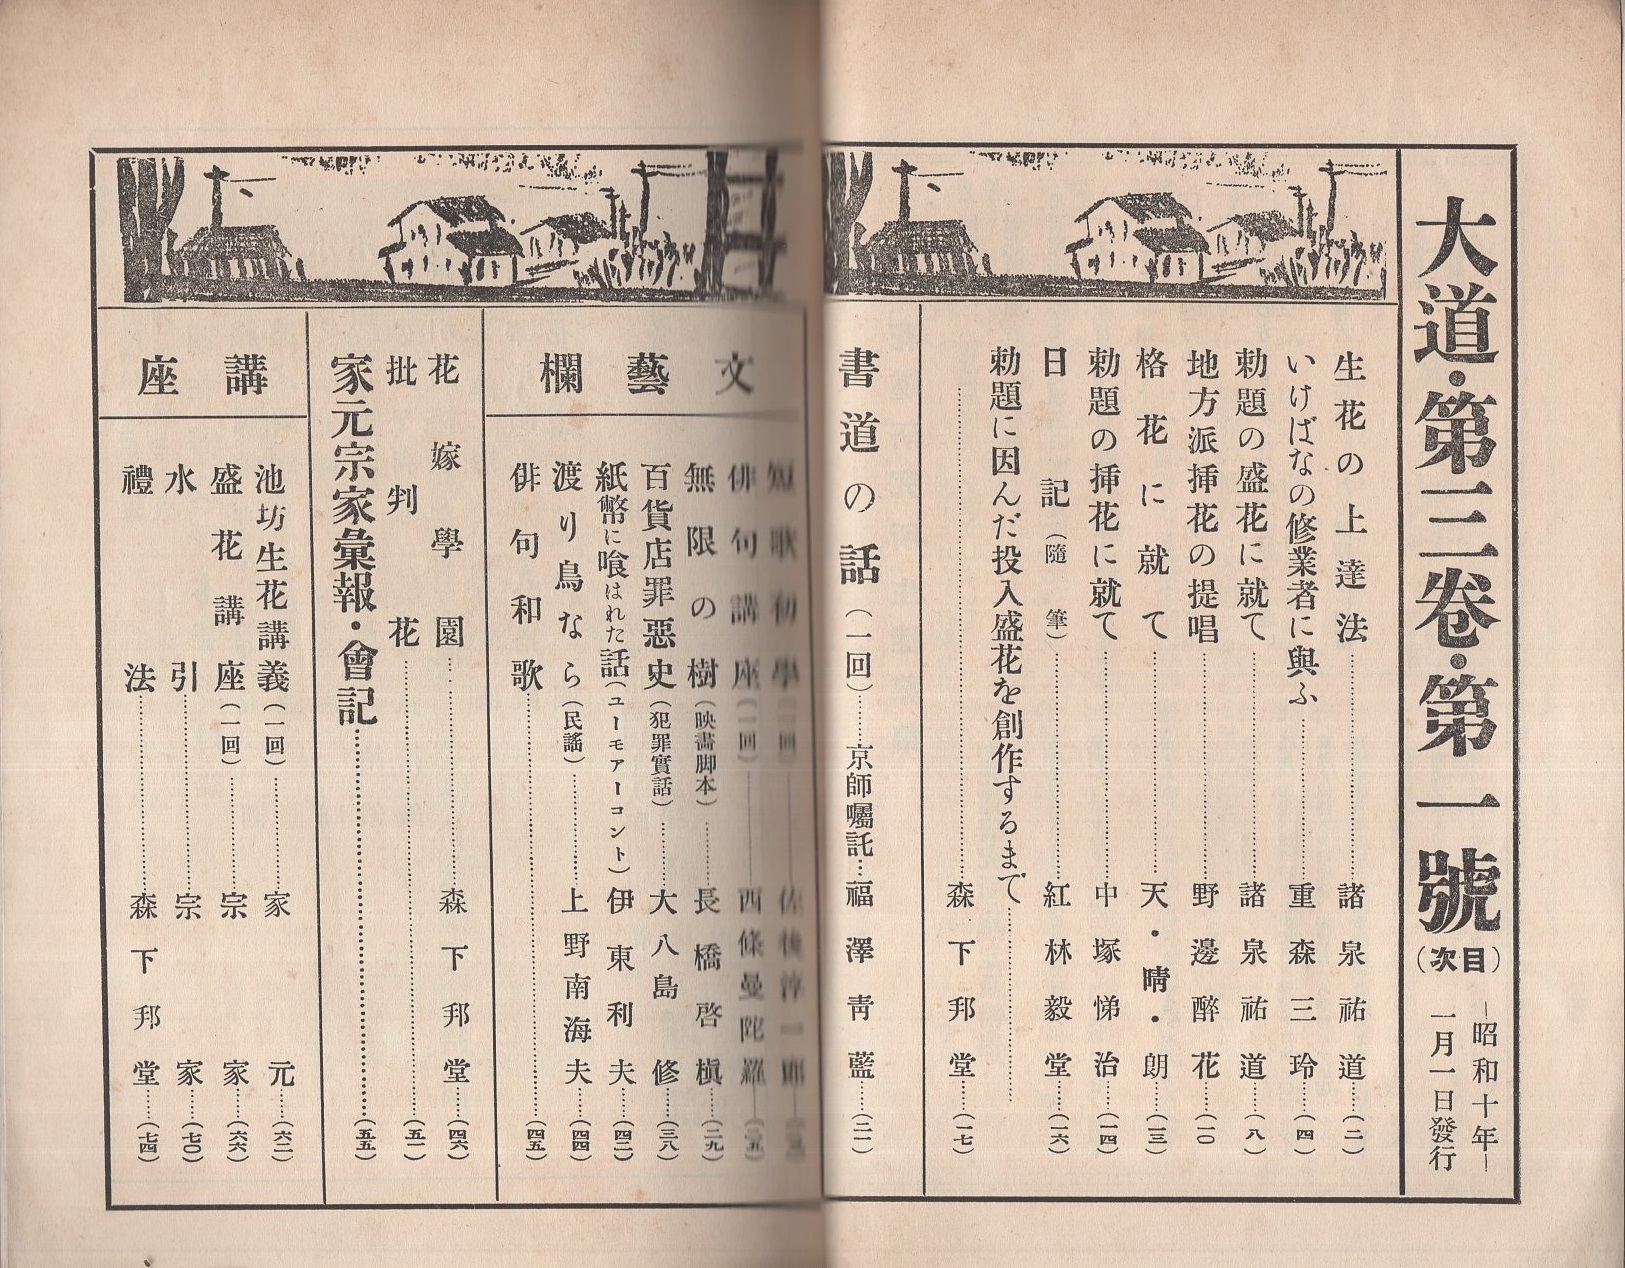 大道・第三卷・第一號
(目次)
―昭和十年―
一月一日發行
生花の上達法……諸泉祐道……(二)
いけばなの修業者に與ふ……重森三玲……(四)
勅題の盛花に就て……諸泉祐道……(八)
地方派挿花の提唱……野邊醉花……(一〇)
格花に就て……天・晴・朗……(一三)
勅題の挿花に就て……中塚悌治……(一四)
日記(隨筆)……紅林毅堂……(一六)
勅題に因んだ投入盛花を創作するまで……
……森下邦堂……(一七)
書道の話(一回)……京師囑託…福澤靑藍……(二一)
文藝欄
短歌初學(一回)――佐後淳一郎――
俳句講座(一回)――西條曼陀羅――
無限の樹(映畵脚本)……長橋啓槇……(二九)
百貨店罪惡史(犯罪實話)……大八島修……(三八)
紙幣に喰はれた話(ユーモアーコント)伊東利夫……(四二)
渡り鳥なら(民謠)……上野南海夫……(四四)
俳句和歌……(四五)
花嫁學園……森下邦堂……(四六)
批判花……(五一)
家元宗家彙報・會記……(五五)
講座
池坊生花講義(一回)……家元……(六二)
盛花講座(一回)……宗家……(六六)
水引……宗家……(七〇)
禮法……森下邦堂……(七四)